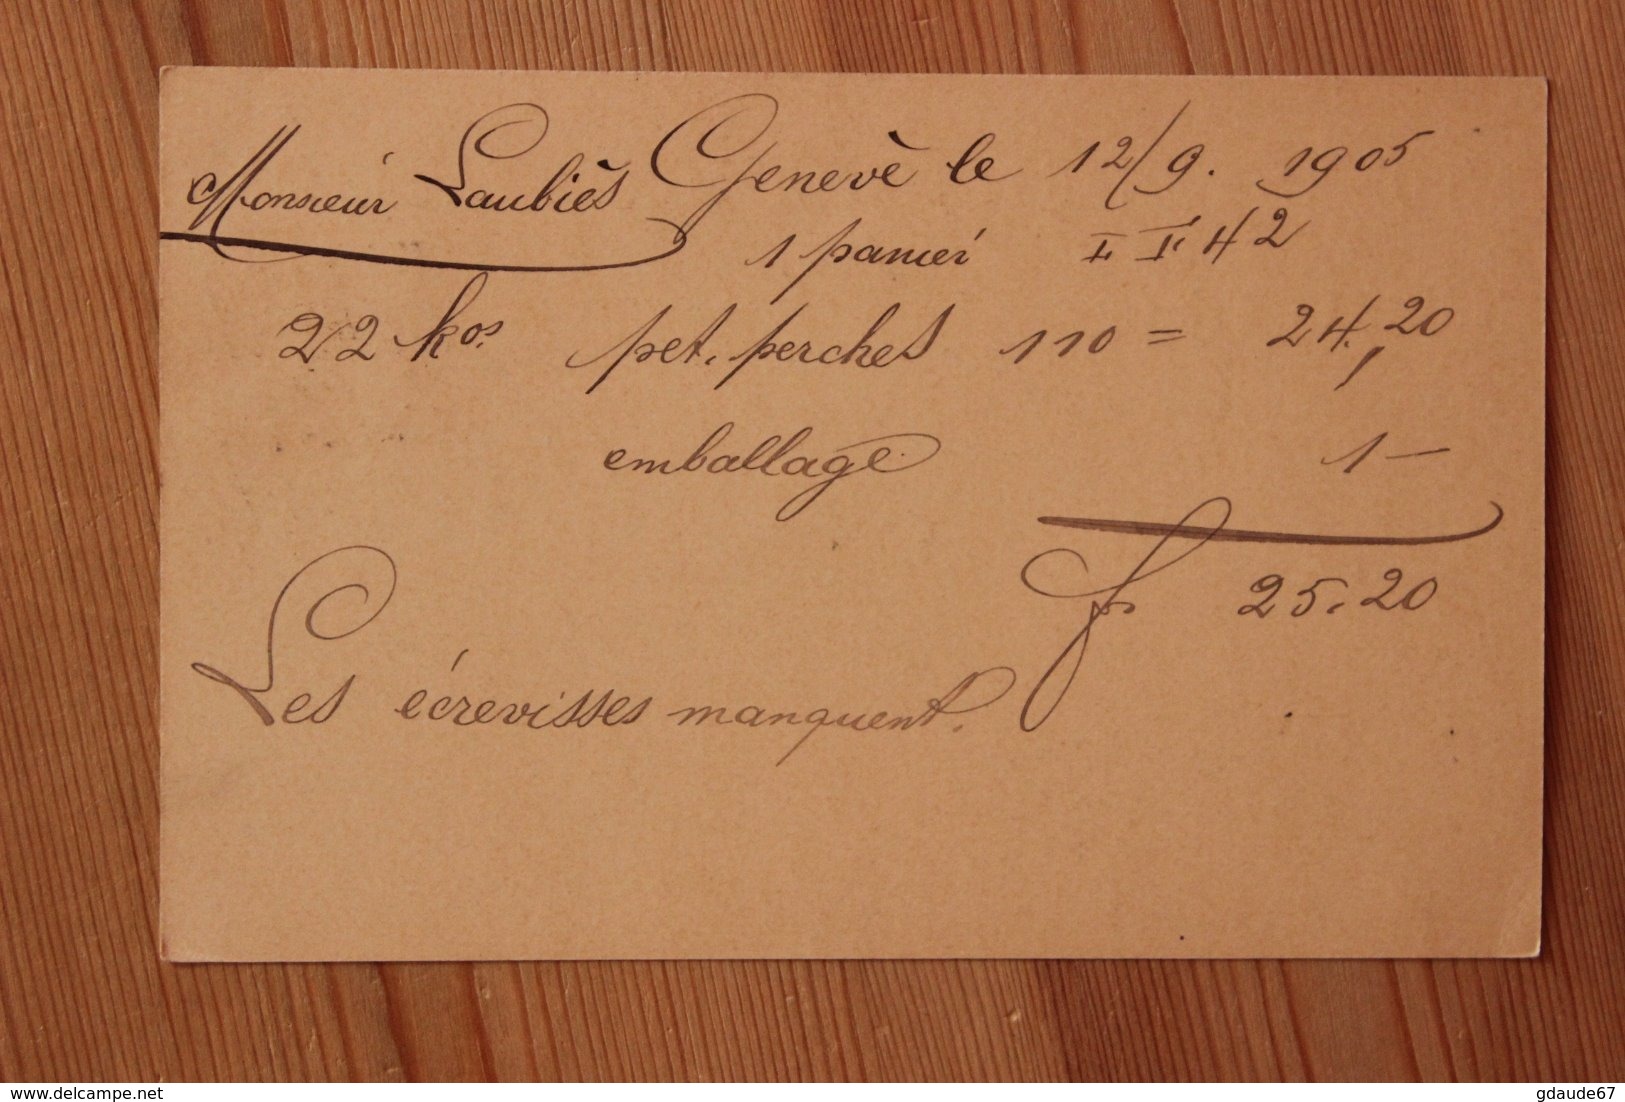 Monsieur Laubiès Genevè le 12/9. 1905
1 panier I I. 42
22 kos. pet. perches 110 = 24,20
emballage 1 —
f 25.20
Les écrevisses manquent.
www.delcampe.net
gdaude67